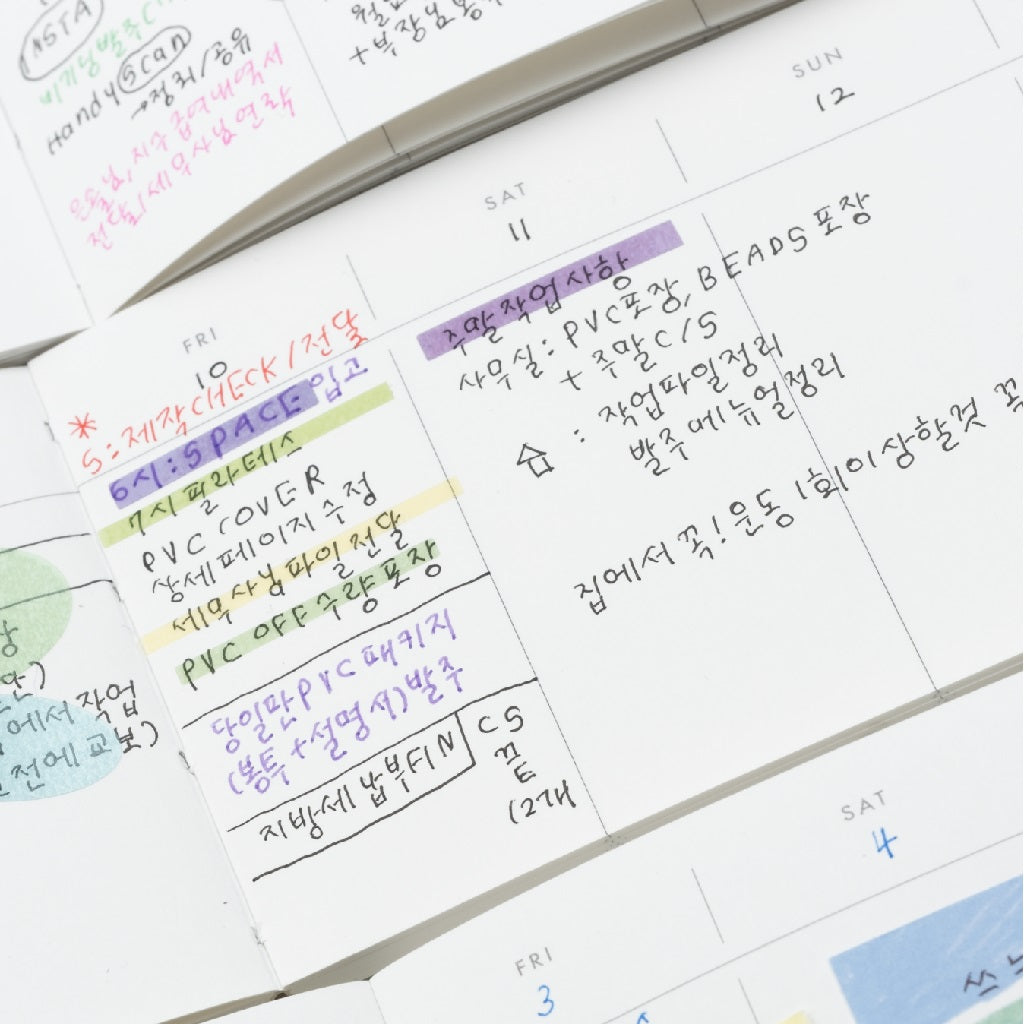 INSTA
Handy scan
→정리/공유
은솔님, 지수 급여내역서
전달/세무사님 연락
+부장님
SUN
12
SAT
11
주말작업사항
사무실: PVC포장, BEADS 포장
+ 주말 C/S
: 작업파일정리
발주메뉴얼정리
집에서 꼭! 운동 1회이상할것 꼭
FRI
10
* S:제작CHECK/전달
6시:SPACE 입고
7시 필라테스
PVC COVER
상세페이지 수정
세무사님파일 전달
PVC OFF 수량포장
당일판PVC 패키지
(봉투+설명서)발주
지방세 납부FIN
CS
(2개
에서 작업
전에 교보)
SAT
4
FRI
3